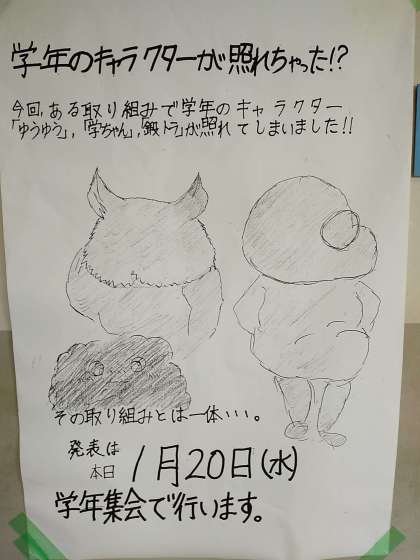 学年のキャラクターが照れちゃった!?
今回、ある取り組みで学年のキャラクター
「ゆうゆう」,「学ちゃん」,「鍛トラ」が照れてしまいました!!
その取り組みとは一体・・・。
発表は
本日 1月20日(水)
学年集会で行います。